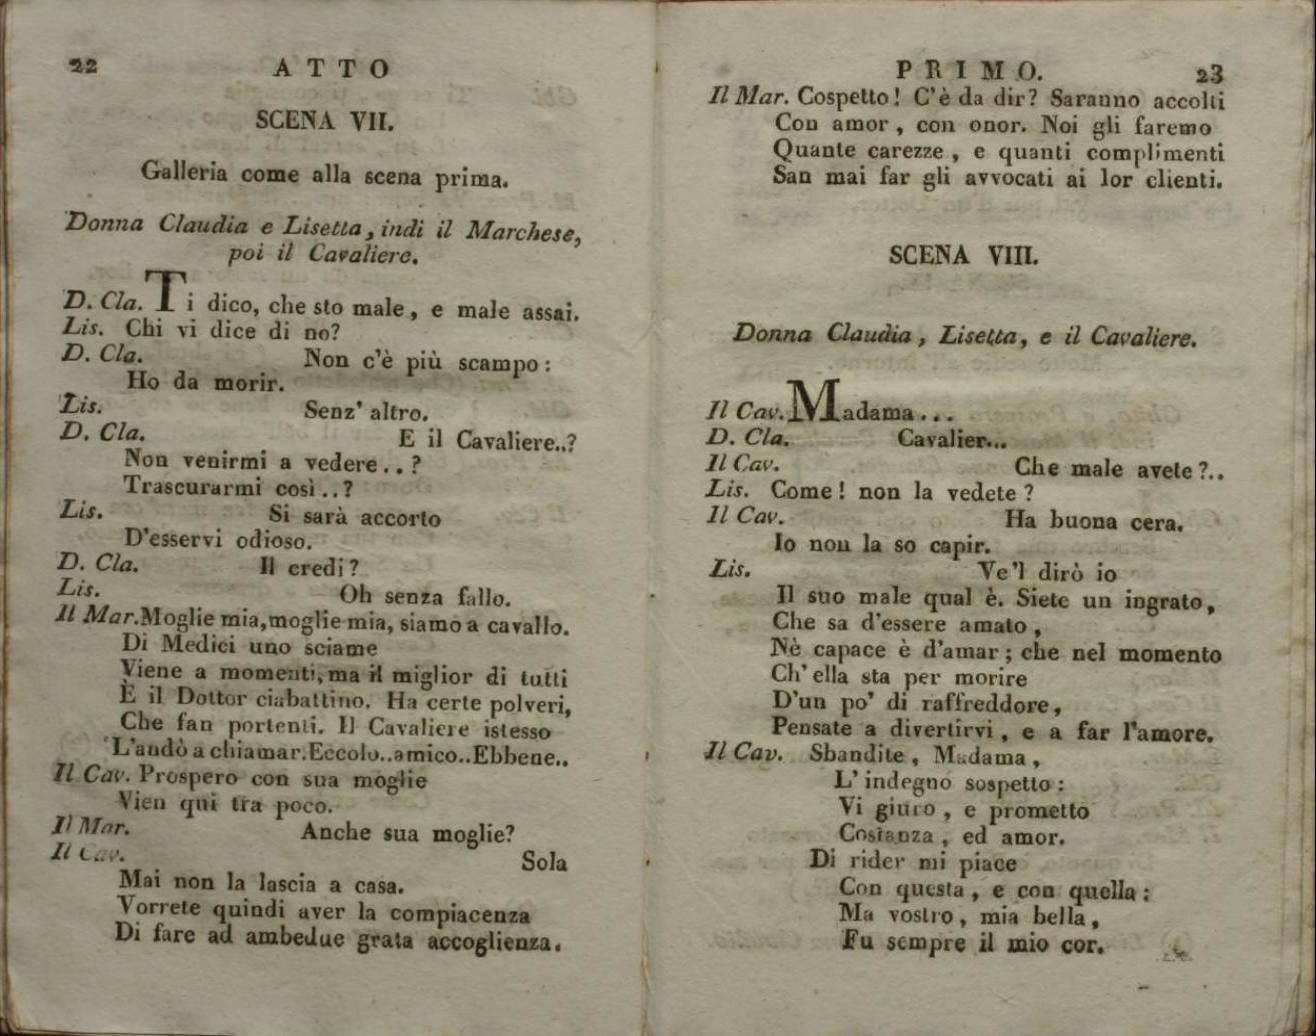 22
ATTO
SCENA VII.
Galleria come alla scena prima.
Donna Claudia e Lisetta, indi il Marchese,
poi il Cavaliere.
D. Cla. Ti dico, che sto male, e male assai.
Lis. Chi vi dice di no?
D. Cla. Non c'è più scampo:
Ho da morir.
Lis. Senz' altro.
D. Cla. E il Cavaliere..?
Non venirmi a vedere..?
Trascurarmi così..?
Lis. Si sarà accorto
D'esservi odioso.
D. Cla. Il credi?
Lis. Oh senza fallo.
Il Mar. Moglie mia, moglie mia, siamo a cavallo.
Di Medici uno sciame
Viene a momenti, ma il miglior di tutti
È il Dottor ciabattino. Ha certe polveri,
Che fan portenti. Il Cavaliere istesso
L'andò a chiamar. Eccolo..amico..Ebbene..
Il Cav. Prospero con sua moglie
Vien qui tra poco.
Il Mar. Anche sua moglie?
Il Cav. Sola
Mai non la lascia a casa.
Vorrete quindi aver la compiacenza
Di fare ad ambedue grata accoglienza.
PRIMO.
23
Il Mar. Cospetto! C'è da dir? Saranno accolti
Con amor, con onor. Noi gli faremo
Quante carezze, e quanti complimenti
San mai far gli avvocati ai lor clienti.
SCENA VIII.
Donna Claudia, Lisetta, e il Cavaliere.
Il Cav. Madama...
D. Cla. Cavalier...
Il Cav. Che male avete?..
Lis. Come! non la vedete?
Il Cav. Ha buona cera.
Io non la so capir.
Lis. Ve'l dirò io
Il suo male qual è. Siete un ingrato,
Che sa d'essere amato,
Nè capace è d'amar; che nel momento
Ch' ella sta per morire
D'un po' di raffreddore,
Pensate a divertirvi, e a far l'amore.
Il Cav. Sbandite, Madama,
L' indegno sospetto:
Vi giuro, e prometto
Costanza, ed amor.
Di rider mi piace
Con questa, e con quella:
Ma vostro, mia bella,
Fu sempre il mio cor.